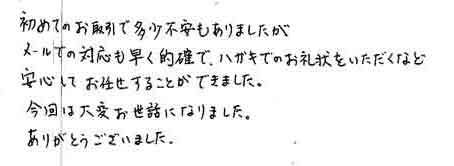 初めてのお取引で多少不安もありましたが
メールでの対応も早く的確で、ハガキでのお礼状をいただくなど
安心してお任せすることができました。
今回は大変お世話になりました。
ありがとうございました。